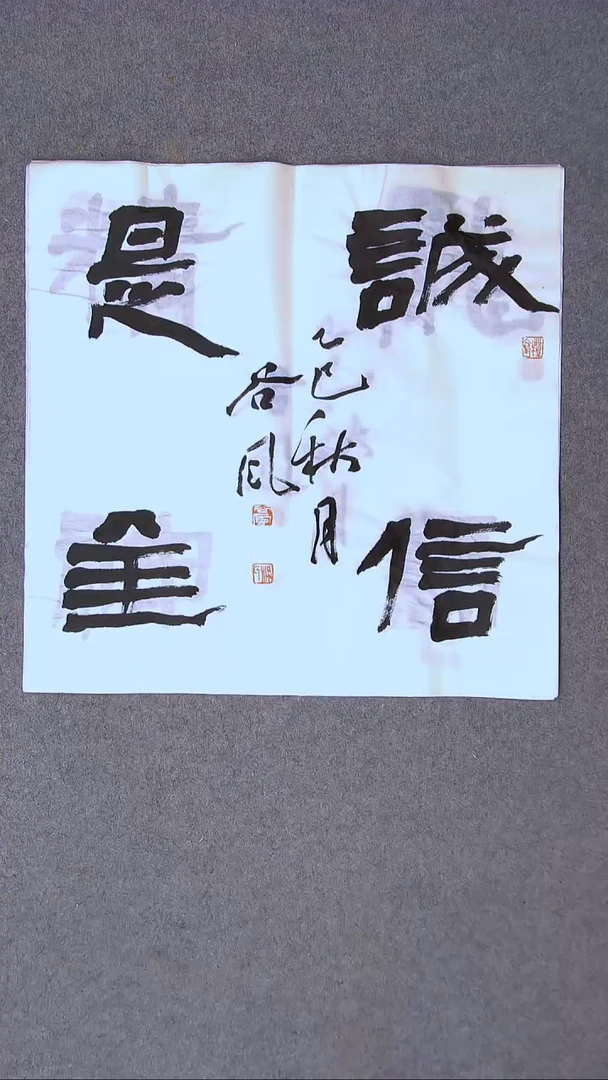 誠信
是金
乙巳秋月
谷风